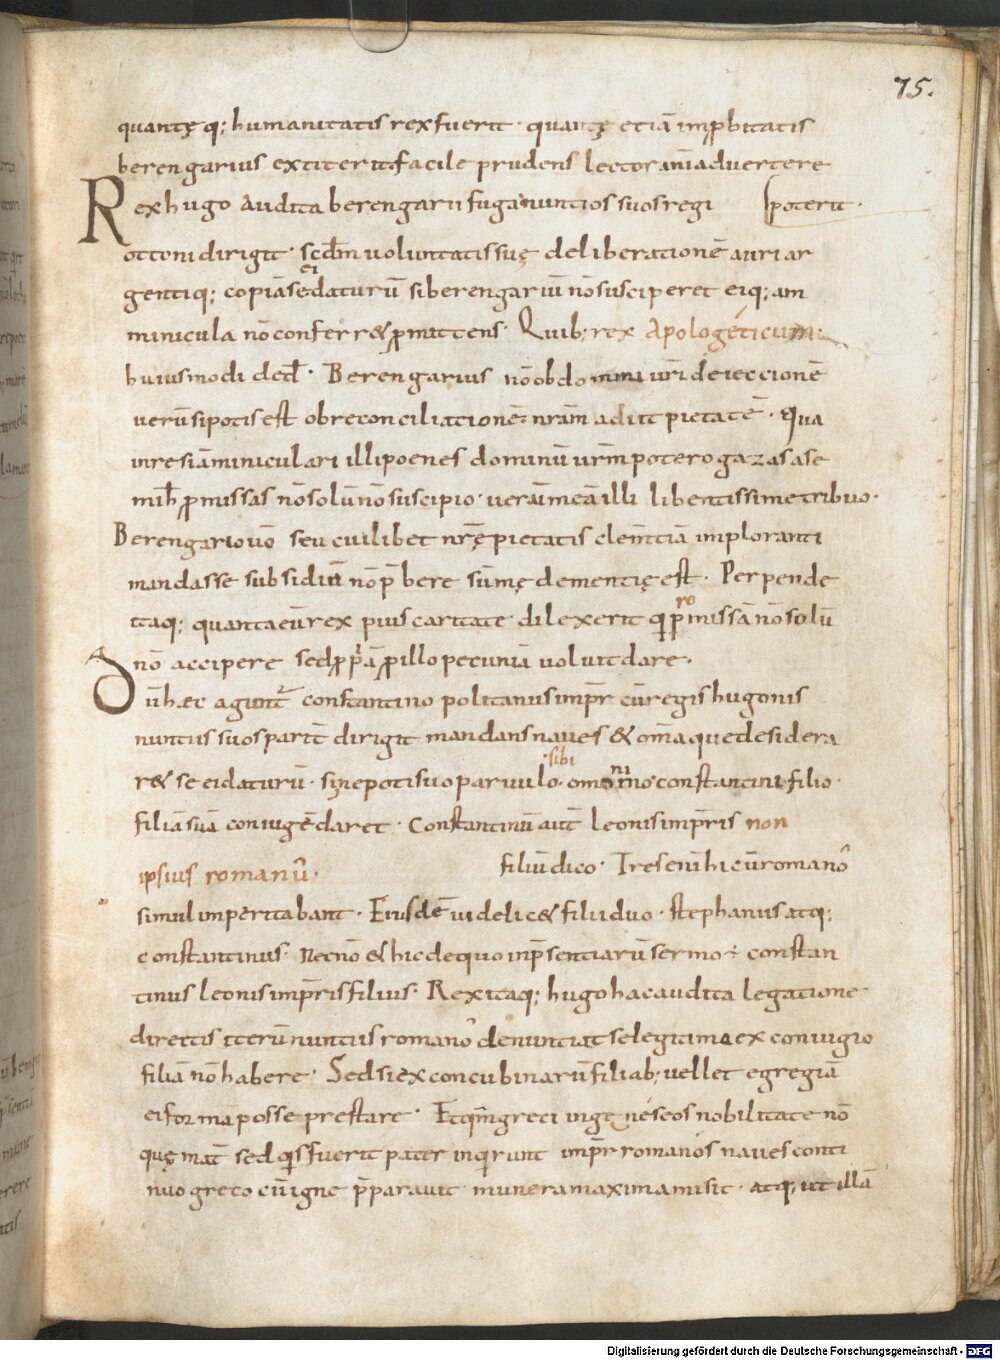 75.
quantę q; humanitatis rex fuerit · quantę etiā imꝓbitatis
berengarius extiterit facile prudens lector aniāduertere
Rex hugo audita berengarii fuga nuntios suos regi poterit ·
ottoni dirigit · scdm uoluntatis suę deliberationē auri ar
gentiq; copiā se ei daturū si berengariū nō susciperet eiq; am
minicula nō conferr& ꝓmittens · Quib; rex Apologéticum
huiusmodi ded · Berengarius nō ob domini uri deieccionē
uerū si potis est ob reconciliationē nram adiit pietatē · Qua
in re si āminiculari illi poenes dominū urm potero gazas a se
mih ꝓmissas nō solū nō suscipio · uerū mea illi libentissime tribuo ·
Berengario uō seu cuilibet nrę pietatis clemtiā imploranti
mandasse subsidiū nō p̄bere sūmę dementię est · Perpende
itaq; quanta eū rex pius caritate dilexerit qi promissā nō solū
nō accipere sed ꝓpriā ꝓ illo pecuniā uoluit dare ·
Dū haec agunt constantinopolitanus impr cū regis hugonis
nuntiis suos parit dirigit mandans naues & omā que desidera
r& se ei daturū · si nepoti suo paruulo · sibi omonimo constantini filio ·
filiā suā coniugē daret · Constantinū aut leonis impris non
ipsius romanū · filiū dico · Tres enī hi cū romano
simul imperitabant · Eiusdē uidelic& filii duo · stephanus atq;
constantinus · Necnō & hic de quo inp̄sentiarū sermo ÷ constan
tinus leonis impris filius · Rex itaq; hugo hac audita legatione
directis iterū nuntiis romano denuntiat se legitima ex coniugio
filiā nō habere · Sed si ex concubinarū filiab; uellet egregiā
ei forma posse prestare · Et qm greci in geneseos nobilitate nō
quę mat sed qis fuerit pater inqirunt impr romanós naues conti
nuo greco cū igne p̄parauit munera maxima misit · atq; ut illā